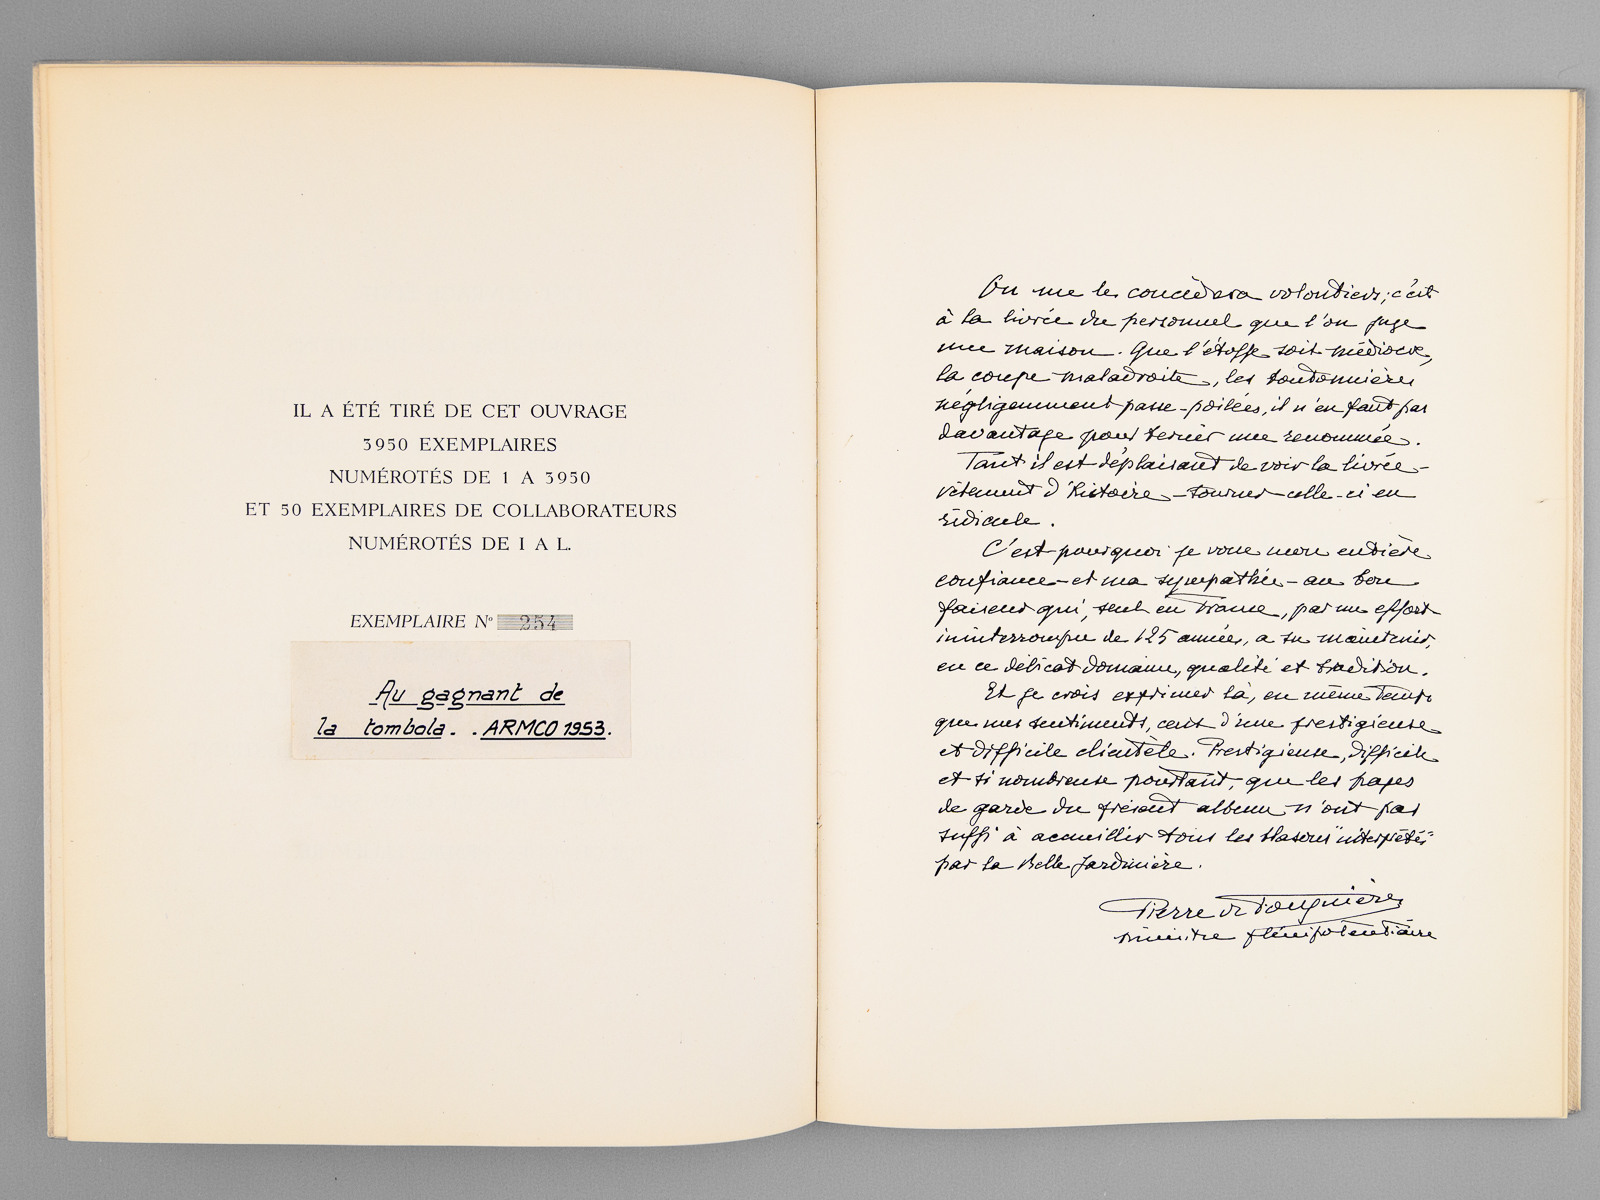 IL A ÉTÉ TIRÉ DE CET OUVRAGE
3950 EXEMPLAIRES
NUMÉROTÉS DE 1 A 3950
ET 50 EXEMPLAIRES DE COLLABORATEURS
NUMÉROTÉS DE I A L.
EXEMPLAIRE Nº 254
Au gagnant de
la tombola. . ARMCO 1953.
On me le concèdera volontiers; c'est
à la livrée du personnel que l'on juge
une maison. Que l'étoffe soit médiocre,
la coupe maladroite, les boutonnières
négligemment passe-poilées, il n'en faut pas
davantage pour ternir une renommée.
Tant il est déplaisant de voir la livrée -
vêtement d'histoire - tourner celle-ci en
ridicule.
C'est pourquoi je voue mon entière
confiance - et ma sympathie - au bon
faiseur qui, seul en France, par un effort
ininterrompu de 125 années, a su maintenir,
en ce délicat domaine, qualité et tradition.
Et je crois exprimer là, en même temps
que mes sentiments, ceux d'une prestigieuse
et difficile clientèle. Prestigieuse, difficile
et si nombreuse pourtant, que les pages
de garde du présent album n'ont pas
suffi à accueillir tous les blasons "interprétés"
par la Belle Jardinière.
Pierre de
ministre plénipotentiaire